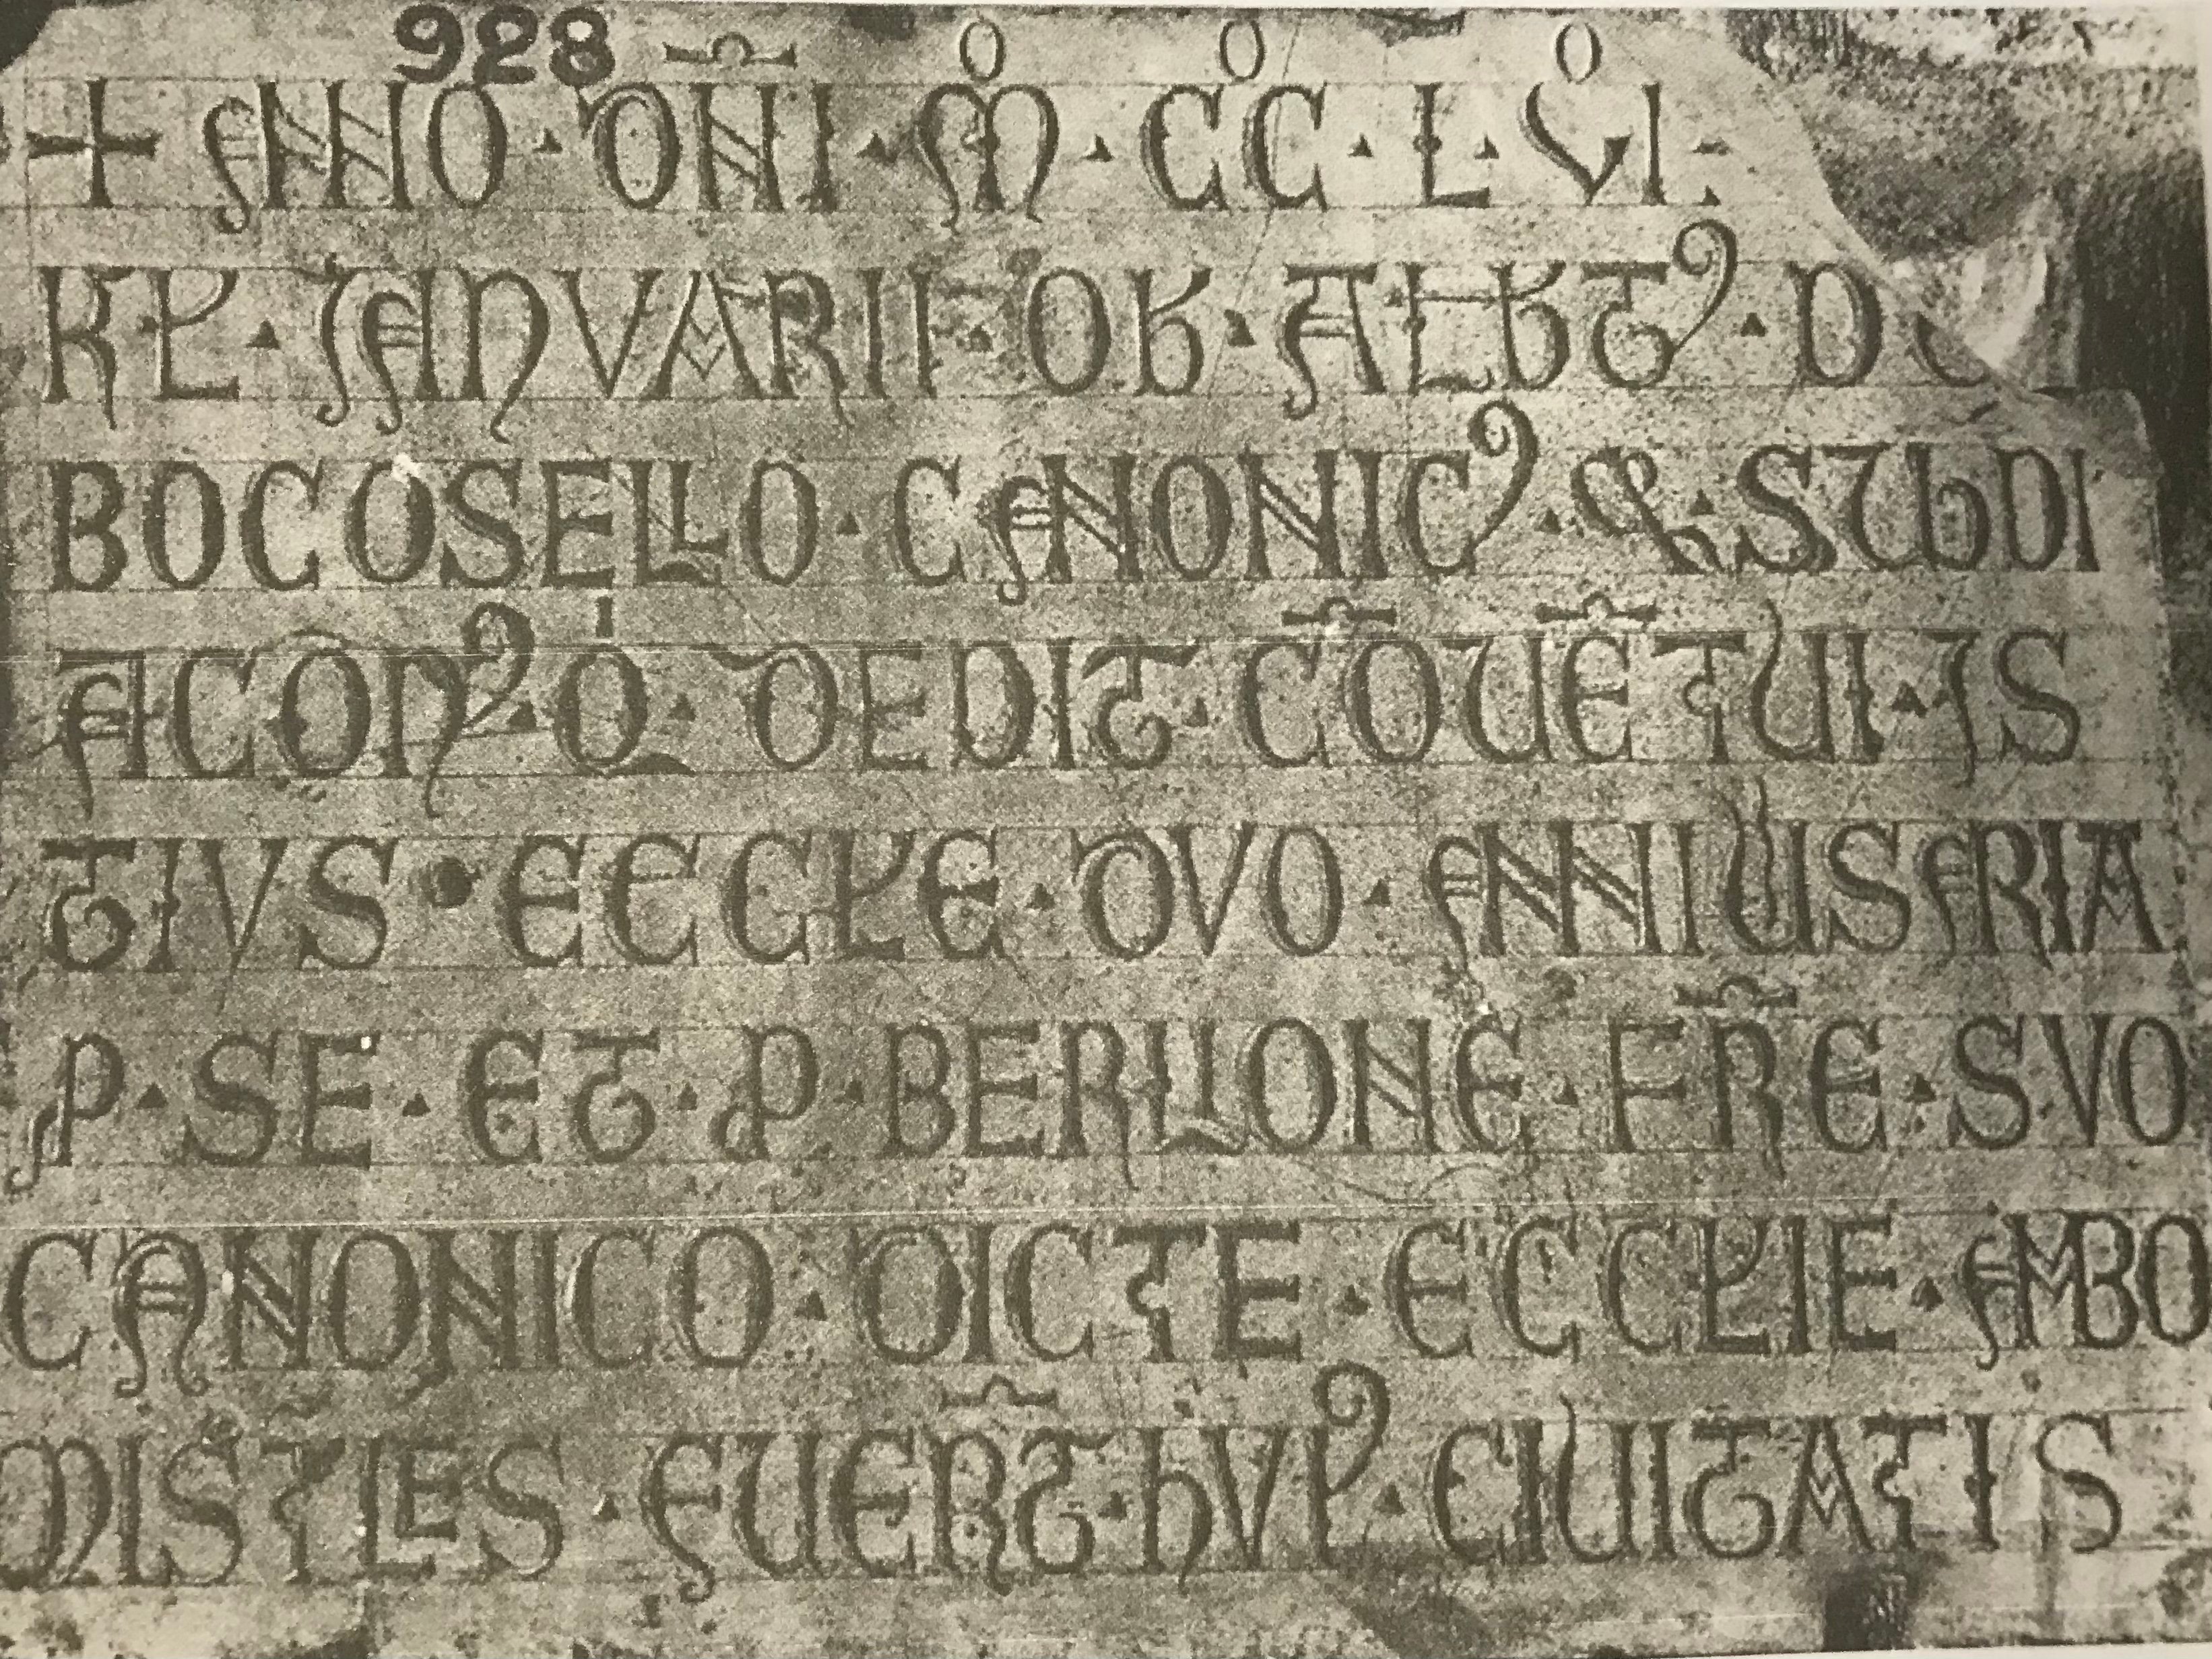 928
+ ANNO · DÑI · Mº · CCº · L · VIº ·
KL · IANVARII · OB · ALBT9 · D
BOCOSELLO · CANONIC9 · & · SUBDI
ACON9 · Q · DEDIT · CŌUĒTUI · IS
TIUS · ECCLE · DVO · ANNIUSARIA
P · SE · ET · P · BERLIONE · FR̄E · SVO
CANONICO · DICTE · ECCLIE · AMBO
MISTLES · FUER̄T · hVI9 · CIUITATIS